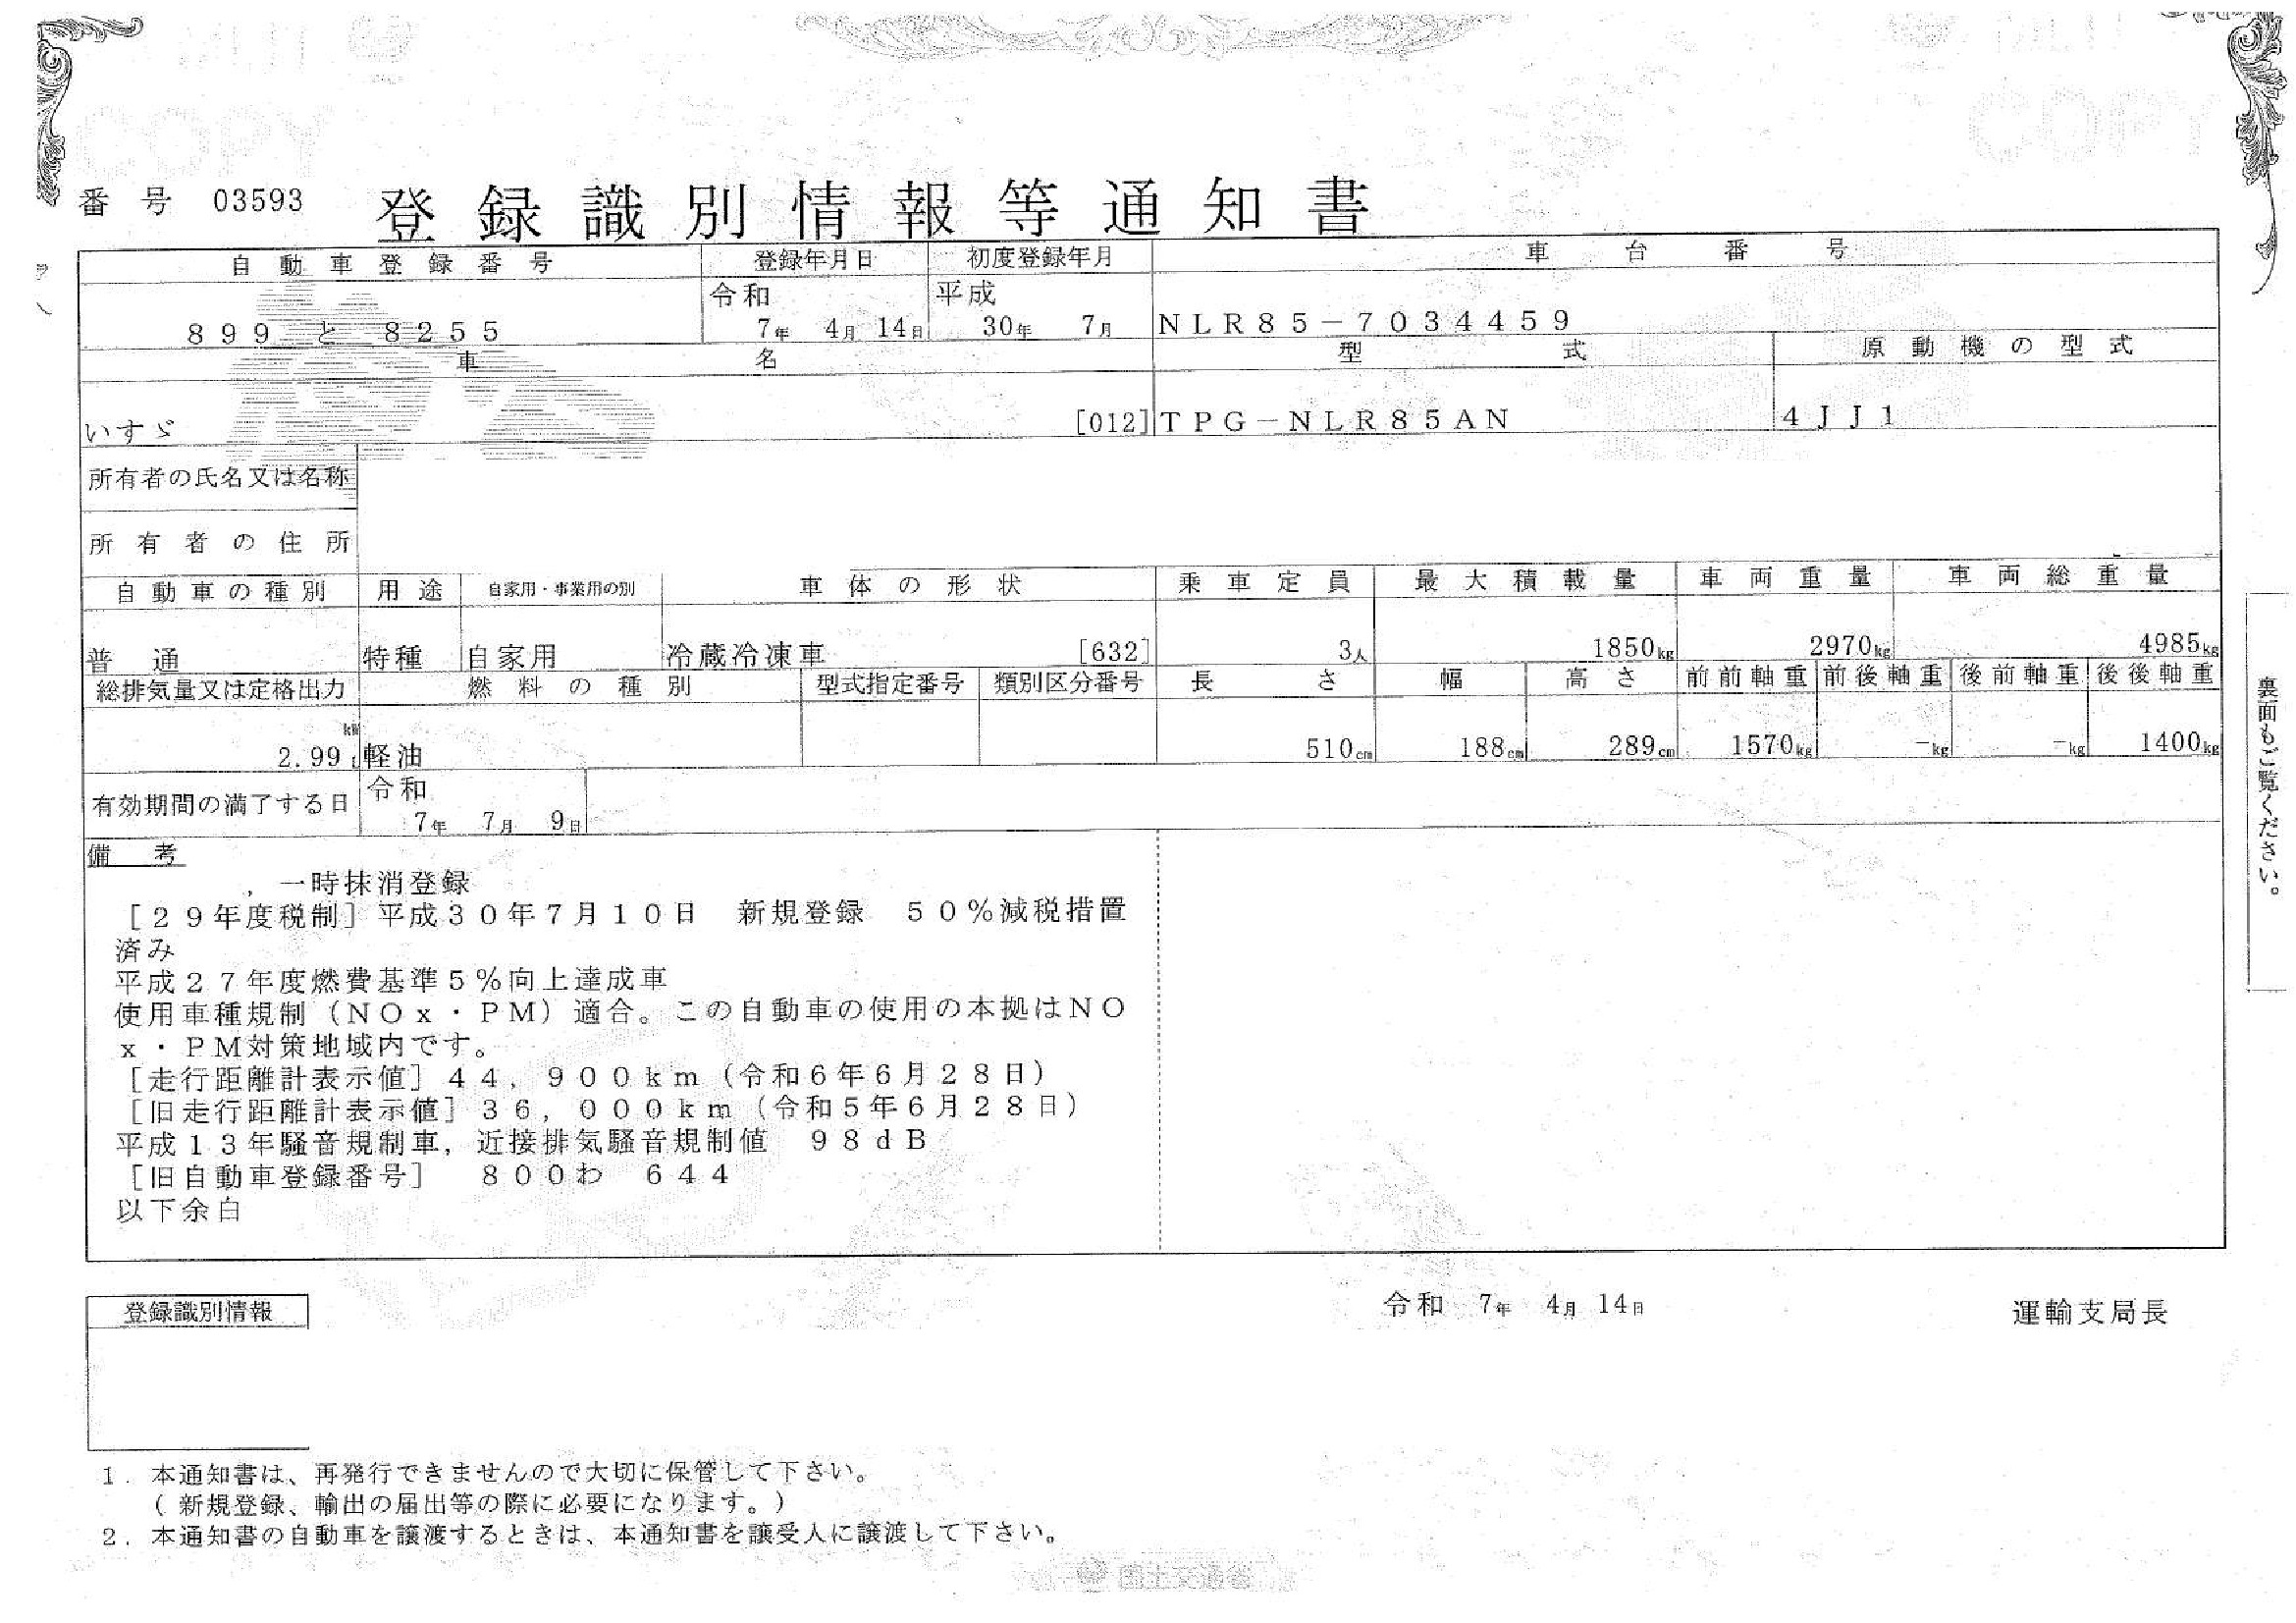 番号 03593 登録識別情報等通知書
自動車登録番号 登録年月日 初度登録年月 車台番号
令和 平成
899 と 8255 7年 4月 14日 30年 7月 NLR85-7034459
車名 型式 原動機の型式
いすゞ [012] TPG-NLR85AN 4JJ1
所有者の氏名又は名称
所有者の住所
自動車の種別 用途 自家用・事業用の別 車体の形状 乗車定員 最大積載量 車両重量 車両総重量
普通 特種 自家用 冷蔵冷凍車 [632] 3人 1850kg 2970kg 4985kg
総排気量又は定格出力 燃料の種別 型式指定番号 類別区分番号 長さ 幅 高さ 前前軸重 前後軸重 後前軸重 後後軸重
kW
2.99 L 軽油 510cm 188cm 289cm 1570kg -kg -kg 1400kg
有効期間の満了する日 令和
7年 7月 9日
備考
, 一時抹消登録
[29年度税制] 平成30年7月10日 新規登録 50%減税措置
済み
平成27年度燃費基準5%向上達成車
使用車種規制（NOx・PM）適合。この自動車の使用の本拠はNO
x・PM対策地域内です。
[走行距離計表示値] 44,900km（令和6年6月28日）
[旧走行距離計表示値] 36,000km（令和5年6月28日）
平成13年騒音規制車，近接排気騒音規制値 98dB
[旧自動車登録番号] 800わ 644
以下余白
裏面もご覧ください。
登録識別情報
令和 7年 4月 14日 運輸支局長
1. 本通知書は、再発行できませんので大切に保管して下さい。
（新規登録、輸出の届出等の際に必要になります。）
2. 本通知書の自動車を譲渡するときは、本通知書を譲受人に譲渡して下さい。
COPY
COPY